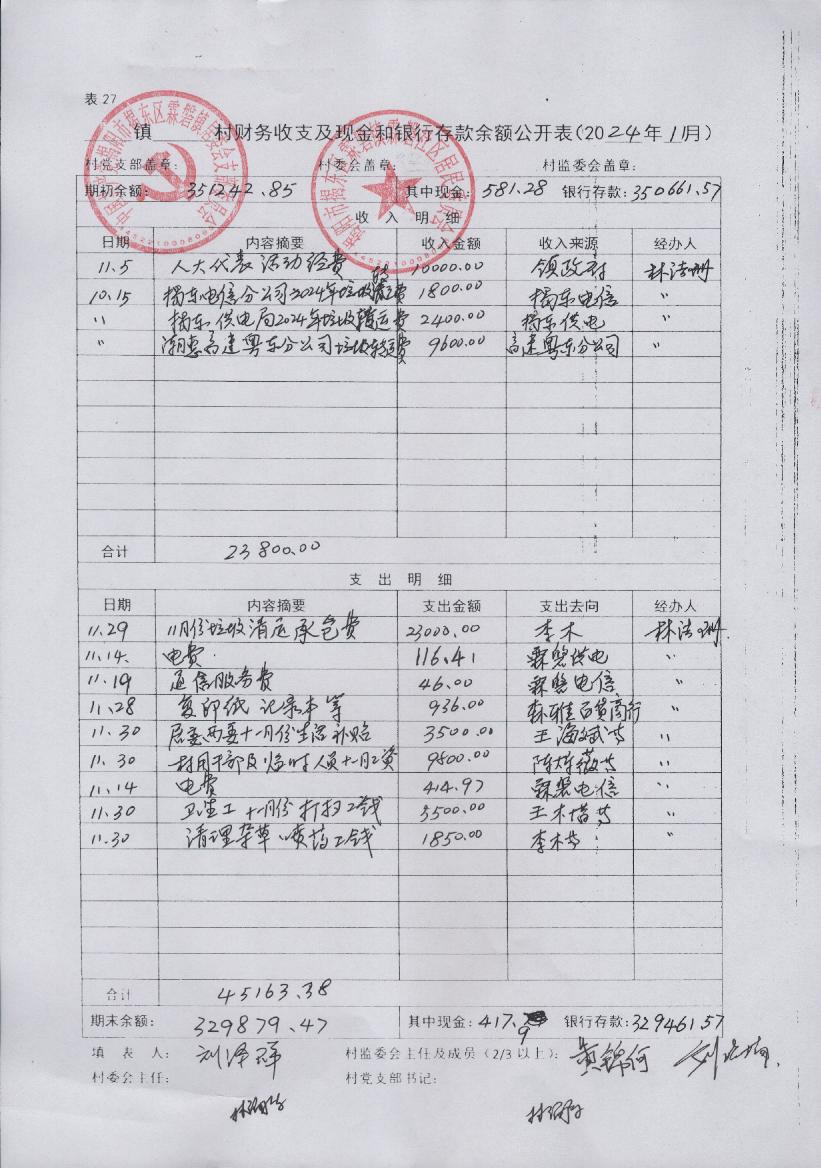 表 27
镇 村财务收支及现金和银行存款余额公开表(2024年11月)
村党支部盖章: 村委会盖章: 村监委会盖章:
期初余额: 351242.85 其中现金: 581.28 银行存款: 350661.57
收 入 明 细
日期 内容摘要 收入金额 收入来源 经办人
11.5 人大代表活动经费 10000.00 领政府
10.15 揭东电信分公司2024年垃圾清运费 1800.00 揭东电信 〃
〃 揭东供电局2024年垃圾转运费 2400.00 揭东供电 〃
〃 潮惠高速粤东分公司垃圾转运费 9600.00 高速粤东分公司 〃
合计 23800.00
支 出 明 细
日期 内容摘要 支出金额 支出去向 经办人
11.29 11月份垃圾清运承包费 23000.00 李木
11.14. 电费. 116.41 霖磐供电 〃
11.19 通信服务费 46.00 霖磐电信 〃
11.28 复印纸 记录本等 936.00 百货商行 〃
11.30 居委两委十一月份生活补贴 3500.00 王海斌等 〃
11.30 村用干部及临时人员十一月工资 9800.00 〃
11.14 电费 414.97 霖磐电信 〃
11.30 卫生工十一月份打扫工钱 5500.00 〃
11.30 清理杂草喷药工钱 1850.00 李木等 〃
合计 45163.38
期末余额: 329879.47 其中现金: 417.9 银行存款: 329461.57
填 表 人: 村监委会主任及成员(2/3 以上): 黄锦何
村委会主任: 村党支部书记: